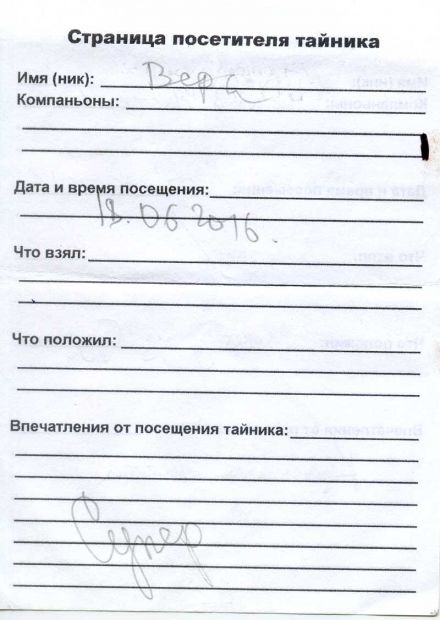 Страница посетителя тайника
Имя (ник): Вера
Компаньоны:
Дата и время посещения:
18.06 2016.
Что взял:
Что положил:
Впечатления от посещения тайника:
Супер